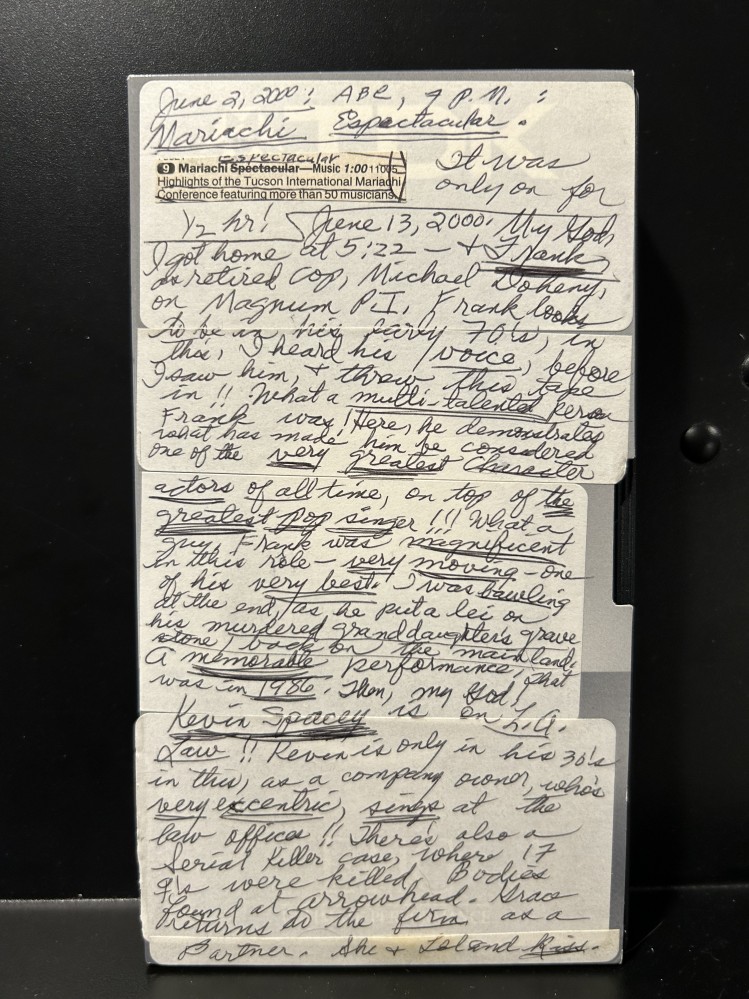 June 2, 2000: ABC, 9 P.M. :
Mariachi Espectacular.
Espectacular
9 Mariachi Spectacular—Music 1:00 11005
Highlights of the Tucson International Mariachi
Conference featuring more than 50 musicians
It was
only on for
1/2 hr! June 13, 2000: My God,
I got home at 5:22 – & Frank,
as retired cop, Michael Doheny,
on Magnum P.I. Frank looks
to be in his early 70's, in
this, I heard his voice, before
I saw him, & threw this tape
in!! What a multi-talented person
Frank was! Here, he demonstrates
what has made him be considered
one of the very greatest Character
actors of all time, on top of the
greatest pop singer!!! What a
guy, Frank was magnificent
in this role – very moving – one
of his very best. I was bawling
at the end, as he put a lei on
his murdered granddaughter's grave
stone, back on the mainland.
A memorable performance, that
was in 1986. Then, my God,
Kevin Spacey is on L.A.
Law!! Kevin is only in his 30's
in this, as a company owner, who's
very excentric, sings at the
law office!! There's also a
Serial Killer case, where 17
g's were killed. Bodies
found at arrowhead. Grace
returns to the firm as a
Partner. She & Leland Kiss.